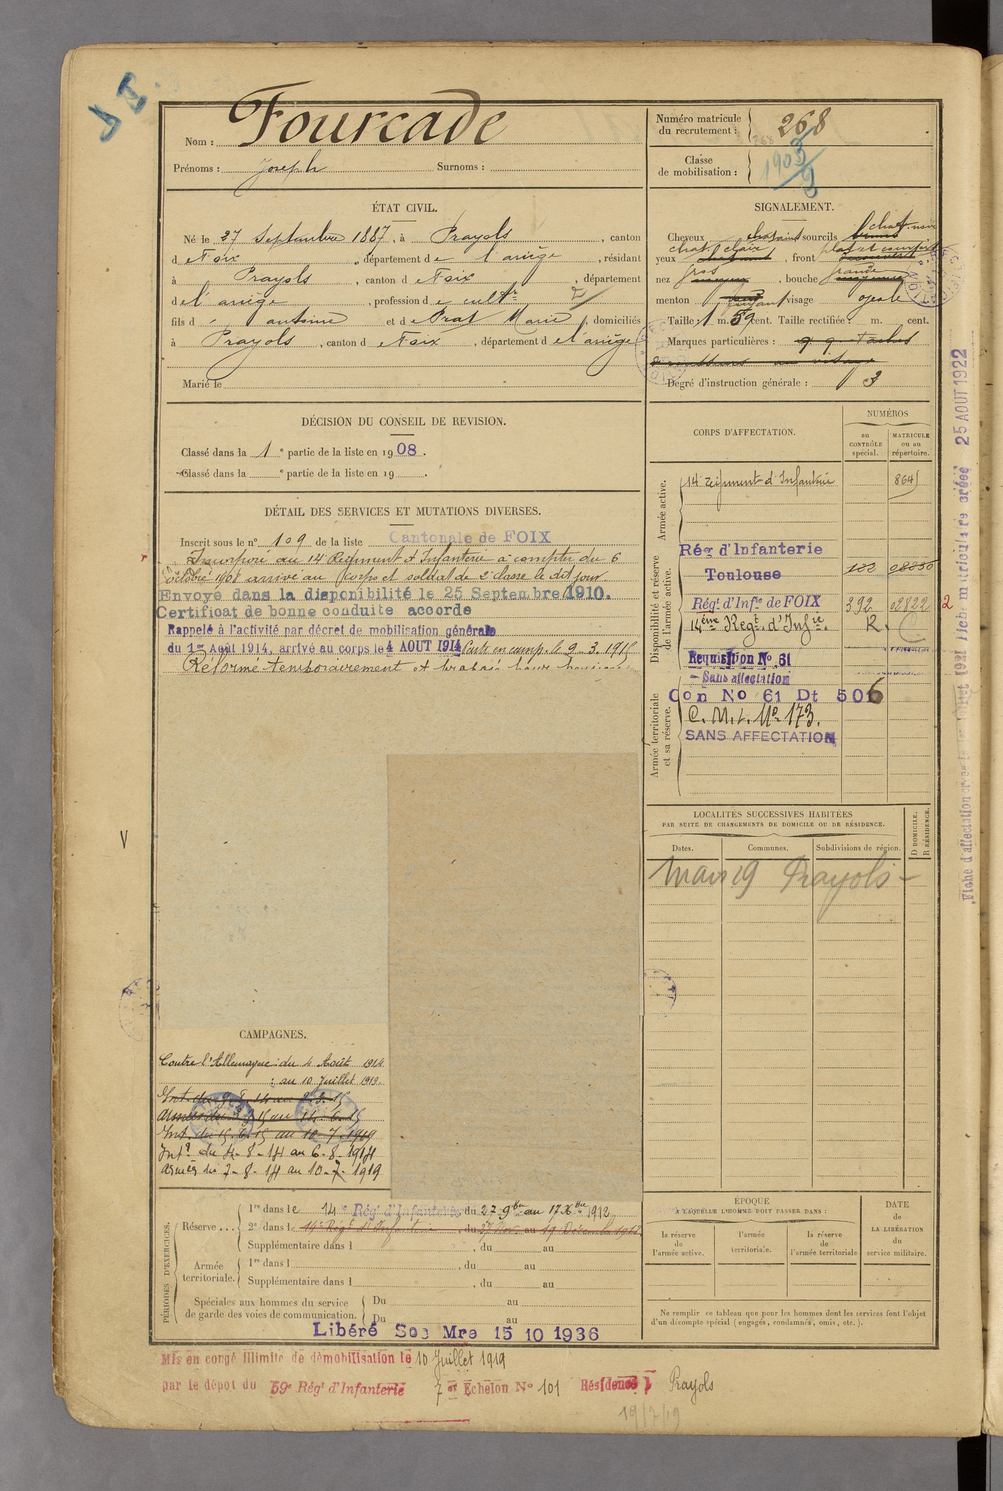 Nom : Fourcade
Prénoms : Joseph Surnoms :
Numéro matricule du recrutement : 268
Classe de mobilisation : 1903
ÉTAT CIVIL.
Né le 27 Septembre 1887, à Prayols, canton
d e Foix, département de l'ariège, résidant
à Prayols, canton d e Foix, département
d e l'ariège, profession d e cultr
fils d antoine et d e Prat Marie, domiciliés
à Prayols, canton d e Foix, département d e l'ariège
Marié le
SIGNALEMENT.
Cheveux chatains sourcils chat. noir
yeux chat. clair, front
nez gros, bouche grande
menton visage ovale
Taille : 1 m. 59 cent. Taille rectifiée : m. cent.
Marques particulières :
Degré d'instruction générale : 3
DÉCISION DU CONSEIL DE REVISION.
Classé dans la 1e partie de la liste en 1908.
Classé dans la e partie de la liste en 19
DÉTAIL DES SERVICES ET MUTATIONS DIVERSES.
Inscrit sous le n° 109 de la liste Cantonale de FOIX
Incorporé au 14 Régiment d'Infanterie à compter du 6
octobre 1908 arrivé au corps et soldat de 2e classe le dit jour
Envoyé dans la disponibilité le 25 Septembre 1910.
Certificat de bonne conduite accordé
Rappelé à l'activité par décret de mobilisation générale
du 1er Août 1914, arrivé au corps le 4 AOUT 1914 Parti en camp. le 9.3.1915
Réformé temporairement
CORPS D'AFFECTATION.
NUMÉROS
au CONTRÔLE spécial.
MATRICULE ou au répertoire.
Armée active.
14e régiment d'Infanterie 8645
Disponibilité et réserve de l'armée active.
Rég d'Infanterie
Toulouse
Régt d'Infie de FOIX 392 02822
14ème Régt d'Infie. R.
Armée territoriale et sa réserve.
Requisition No 61
Sans affectation
Con No 61 Dt 506
C.M.I. No 173.
SANS AFFECTATION
LOCALITÉS SUCCESSIVES HABITÉES
PAR SUITE DE CHANGEMENTS DE DOMICILE OU DE RÉSIDENCE.
Dates. Communes. Subdivisions de région. D DOMICILE. R RÉSIDENCE.
Mars 19 Prayols
CAMPAGNES.
Contre l'Allemagne : du 4 Août 1914
: au 10 Juillet 1919.
Int. du 4-8-14 au 6-8-1914
armées du 7-8-14 au 10-7-1919
PÉRIODES D'EXERCICES.
Réserve . . . 1re dans l e 14e Rég. d'Infanterie du 27 9bre au 17 Xbre 1912
2e dans l e 14e Régt d'Infanterie, du 27 Nov. au 19 Décembre
Supplémentaire dans l , du au
Armée territoriale. 1re dans l , du au
Supplémentaire dans l , du au
Spéciales aux hommes du service de garde des voies de communication. Du au
Du au
Libéré Sce Mre 15 10 1936
ÉPOQUE
A LAQUELLE L'HOMME DOIT PASSER DANS :
la réserve de l'armée active.
l'armée territoriale.
la réserve de l'armée territoriale
DATE de LA LIBÉRATION du service militaire.
Ne remplir ce tableau que pour les hommes dont les services font l'objet
d'un décompte spécial (engagés, condamnés, omis, etc.).
Mis en congé illimité de démobilisation le 10 Juillet 1919
par le dépôt du 59e Régt d'Infanterie 7 er Echelon No 101 Résidence Prayols
19/7/19
25 AOUT 1922